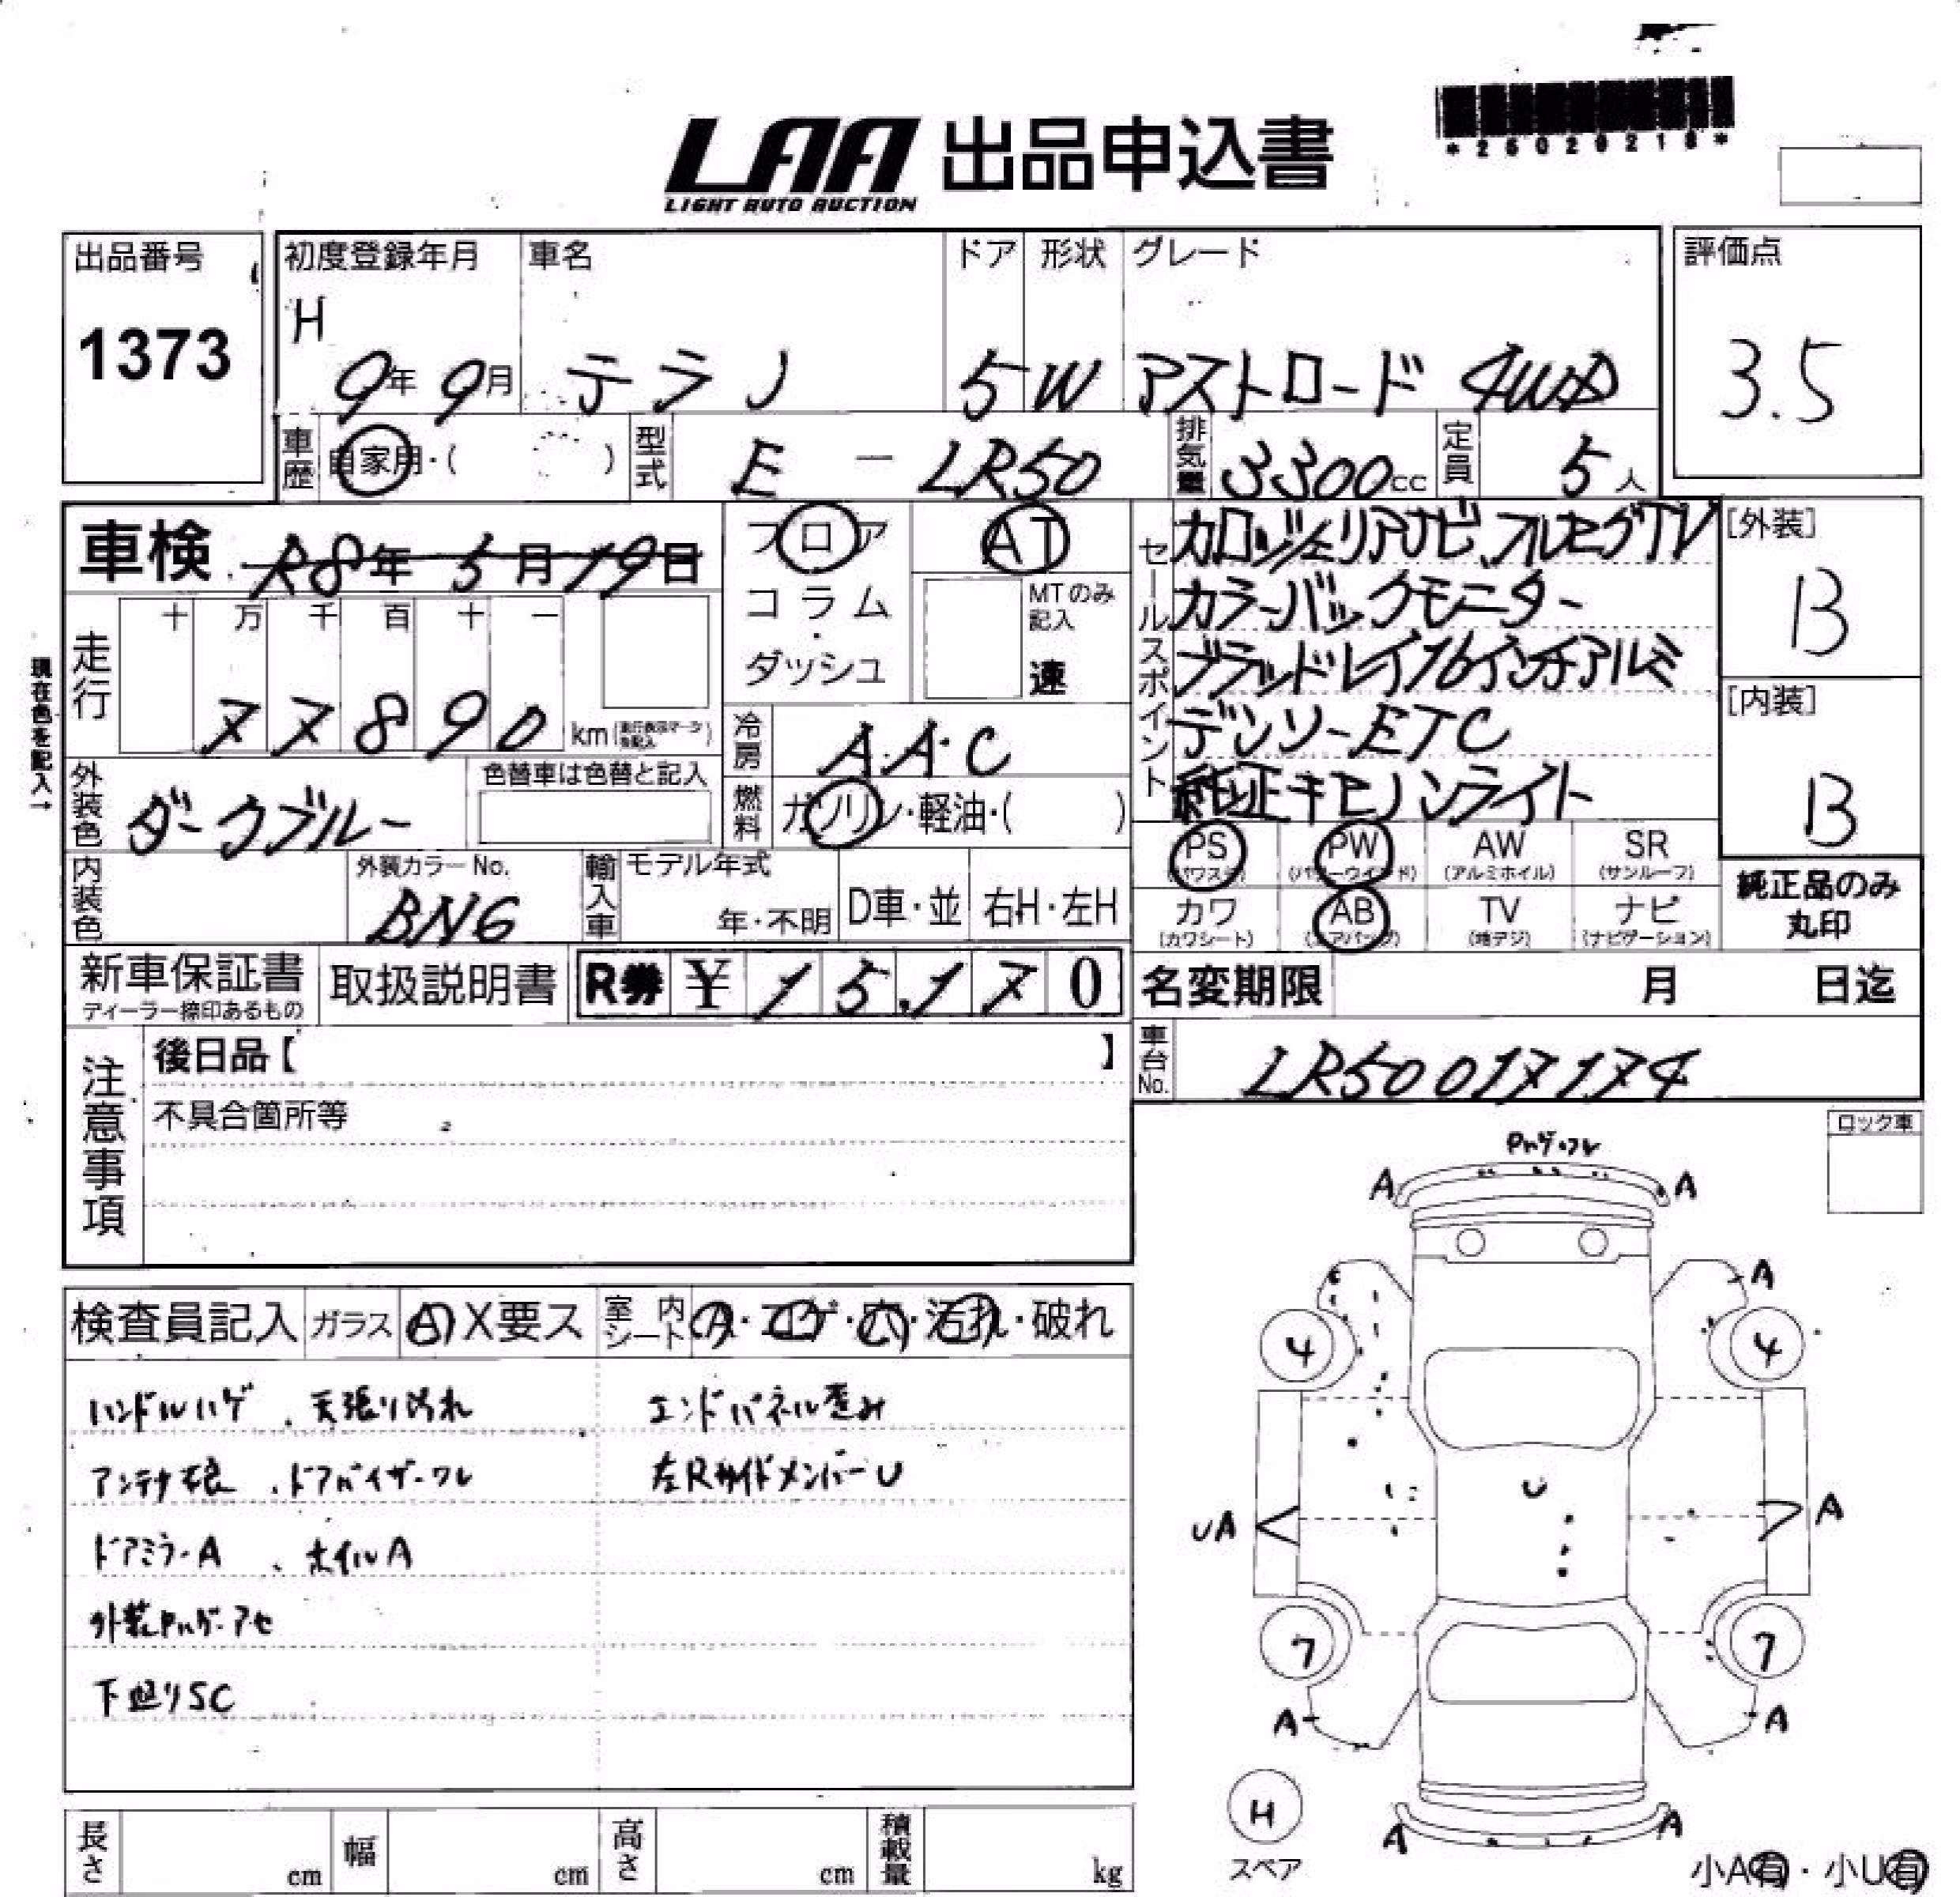 *26020218*
LAA 出品申込書
LIGHT AUTO AUCTION
出品番号
1373
初度登録年月
H
9年 9月
車名
テラノ
ドア
5
形状
W
グレード
アストロード 4WD
評価点
3.5
車歴
自家用・( )
型式
E - LR50
排気量
3300cc
定員
5人
車検 R8年 5月19日
フロア
コラム
・
ダッシュ
AT
MTのみ
記入
速
セールスポイント
カロッツェリアナビ、フルセグTV
カラーバックモニター
ブラッドレイ16インチアルミ
デンソーETC
純正キセノンライト
[外装]
B
[内装]
B
現在色を記入→
走行
十 万 千 百 十 一
77890
km(走行表示マークを記入)
冷房
A・A・C
燃料
ガソリン・軽油・( )
外装色
ダークブルー
色替車は色替と記入
内装色
外装カラーNo.
BNG
輸入車
モデル年式
年・不明
D車・並
右H・左H
PS
(パワステ)
PW
(パワーウインド)
AW
(アルミホイル)
SR
(サンルーフ)
カワ
(カワシート)
AB
(エアバッグ)
TV
(地デジ)
ナビ
(ナビゲーション)
純正品のみ
丸印
新車保証書
ディーラー捺印あるもの
取扱説明書
R券 ¥ 15,170
名変期限 月 日迄
注意事項
後日品【 】
不具合箇所等
車台No.
LR50 017174
ロック車
検査員記入
ガラス
A X要ス
室内シート
A・コゲ・穴・汚れ・破れ
ハンドルハゲ 、天張り汚れ
アンテナ根 、ドアバイザーワレ
ドアミラーA 、ホイルA
外装Pハゲ・アセ
下廻りSC
エンドパネル歪み
左RサイドメンバーU
Pハゲ・ワレ
A A
A
4 4
U
UA A
7 7
A A
H
スペア
A A
小A有・小U有
長さ cm
幅 cm
高さ cm
積載量 kg